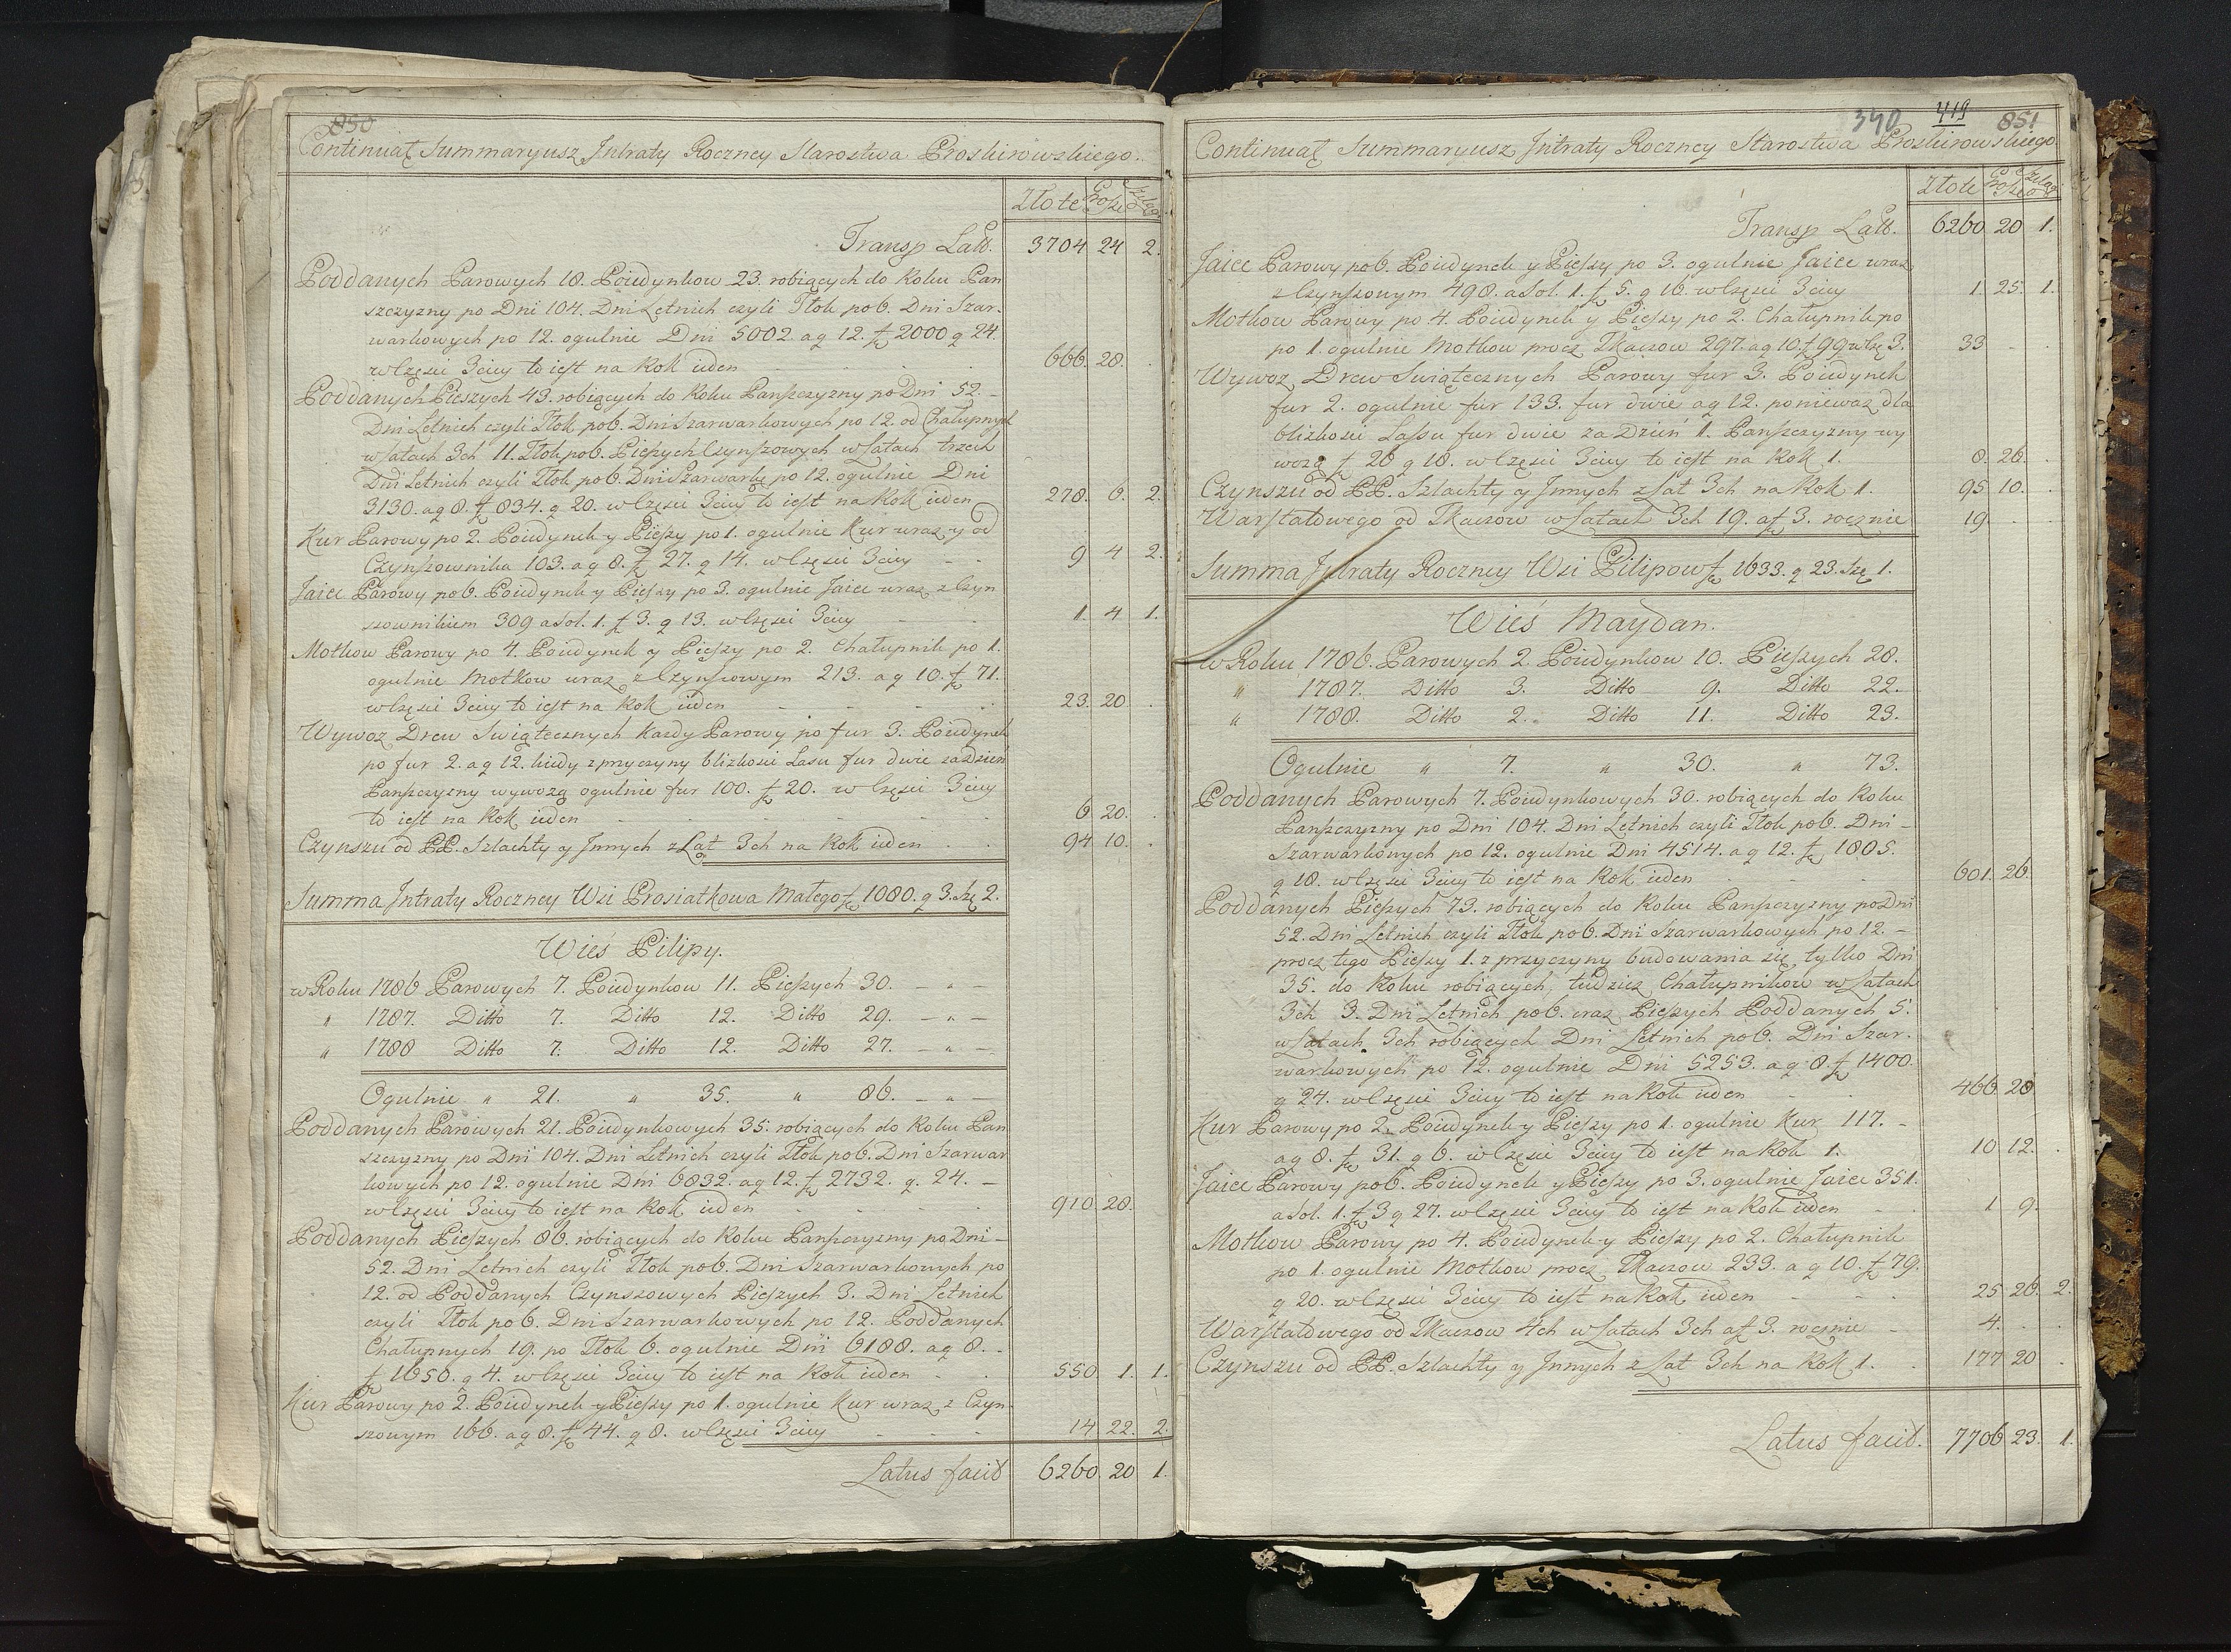 850
Continuat Summaryusz Intraty Roczney Starostwa Proskirowskiego.
Złote Grosze Szelągi
Transp Latt. 3704 24 2.
Poddanych Parowych 18. Poiedynkow 23. robiących do Roku Pan
szczyzny po Dni 104. Dni Letnich czyli Tłok po 6. Dni Szar-
warkowych po 12. ogulnie Dni 5002. a g 12. f 2000 g 24.
w Częsci 3ciey to iest na Rok ieden 666. 28.
Poddanych Pieszych 43. robiących do Roku Panszczyzny po Dni 52.
Dni Letnich czyli Tłok po 6. Dni Szarwarkowych po 12. od Chałupnych
w Latach 3ch 11. Tłok po 6. Pieszych Czynszowych w Latach trzech
Dni Letnich czyli Tłok po 6. Dni Szarwark. po 12. ogulnie Dni
3130. a g 8. f 834. g 20. w Częsci 3ciey to iest na Rok ieden 278. 6. 2.
Kur Parowy po 2. Poiedynek y Pieszy po 1. ogulnie Kur wraz y od
Czynszownika 103. a g 8. f 27. g 14. w Częsci 3ciey 9 4 2.
Jaiec Parowy po 6. Poiedynek y Pieszy po 3. ogulnie Jaiec wraz z Czyn
szownikiem 309 a Sol. 1. f 3. g 13. w Częsci 3ciey 1. 4 1.
Motkow Parowy po 4. Poiedynek y Pieszy po 2. Chałupnik po 1.
ogulnie Motkow wraz z Czynszowym 213. a g 10. f 71.
w Częsci 3ciey to iest na Rok ieden 23. 20.
Wywoz Drew Swiątecznych Kazdy Parowy po fur 3. Poiedynek
po fur 2. a g 12. kiedy z przyczyny blizkosci Lasu fur dwie za Dzień
Panszczyzny wywozą ogulnie fur 100. f 20. w Częsci 3ciey
to iest na Rok ieden 6 20.
Czynszu od PP. Szlachty y Innych z Lat 3ch na Rok ieden 94 10.
Summa Intraty Roczney Wsi Prosiatkowa Małego f 1080. g 3. Szę 2.
Wieś Pilipy.
w Roku 1786 Parowych 7. Poiedynkow 11. Pieszych 30.
" 1787. Ditto 7. Ditto 12. Ditto 29.
" 1788 Ditto 7. Ditto 12. Ditto 27.
Ogulnie " 21. " 35. " 86.
Poddanych Parowych 21. Poiedynkowych 35. robiących do Roku Pan
szczyzny po Dni 104. Dni Letnich czyli Tłok po 6. Dni Szarwar
kowych po 12. ogulnie Dni 6832. a g 12. f 2732. g. 24.
w Częsci 3ciey to iest na Rok ieden 910 28.
Poddanych Pieszych 86. robiących do Roku Panszczyzny po Dni
52. Dni Letnich czyli Tłok po 6. Dni Szarwarkowych po
12. od Poddanych Czynszowych Pieszych 3. Dni Letnich
czyli Tłok po 6. Dni Szarwarkowych po 12. Poddanych
Chałupnych 19. po Tłok 6. ogulnie Dni 6188. a g 8.
f 1650. g 4. w Częsci 3ciey to iest na Rok ieden 550 1. 1.
Kur Parowy po 2. Poiedynek y Pieszy po 1. ogulnie Kur wraz z Czyn
szowym 166. a g 8. f 44. g 8. w Częsci 3ciey 14 22. 2.
Latus facit 6260 20 1.
340 419 851
Continuat Summaryusz Intraty Roczney Starostwa Proskirowskiego
Złote Grosze Szelągi
Transp Latt. 6260 20 1.
Jaiec Parowy po 6. Poiedynek y Pieszy po 3. ogulnie Jaiec wraz
z Czynszowym 498. a Sol. 1. f 5. g 16. w Częsci 3ciey 1. 25. 1.
Motkow Parowy po 4. Poiedynek y Pieszy po 2. Chałupnik po
po 1. ogulnie Motkow procz Tkaczow 297. a g 10. f 99 w Czę 3. 33
Wywoz Drew Swiątecznych Parowy fur 3. Poiedynek
fur 2. ogulnie fur 133. fur dwie a g 12. poniewaz dla
blizkosci Lassu fur dwie za Dzień 1. Panszczyzny wy
wozą f 26 g 18. w Częsci 3ciey to iest na Rok 1. 8. 26.
Czynszu od PP. Szlachty y Innych z Lat 3ch na Rok 1. 95 10.
Warstatowego od Tkaczow w Latach 3ch 19. a f 3. rocznie 19.
Summa Intraty Roczney Wsi Pilipow f 1633. g 23. Szę 1.
Wieś Maydan.
w Roku 1786. Parowych 2. Poiedynkow 10. Pieszych 28.
" 1787. Ditto 3. Ditto 9. Ditto 22.
" 1788. Ditto 2. Ditto 11. Ditto 23.
Ogulnie " 7. " 30. " 73.
Poddanych Parowych 7. Poiedynkowych 30. robiących do Roku
Panszczyzny po Dni 104. Dni Letnich czyli Tłok po 6. Dni
Szarwarkowych po 12. ogulnie Dni 4514. a g 12. f 1805.
g 18. w Częsci 3ciey to iest na Rok ieden 601. 26.
Poddanych Pieszych 73. robiących do Roku Panszczyzny po Dni
52. Dni Letnich czyli Tłok po 6. Dni Szarwarkowych po 12.
procz tego Pieszy 1. z przyczyny budowania się tylko Dni
35. do Roku robiących, tudziez Chałupnikow w Latach
3ch 3. Dni Letnich po 6. oraz Pieszych Poddanych 5.
w Latach 3ch robiących Dni Letnich po 6. Dni Szar-
warkowych po 12. ogulnie Dni 5253. a g 8. f 1400.
g 24. w Częsci 3ciey to iest na Rok ieden 466 28
Kur Parowy po 2. Poiedynek y Pieszy po 1. ogulnie Kur 117.
a g 8. f 31. g 6. w Częsci 3ciey to iest na Rok 1. 10 12.
Jaiec Parowy po 6. Poiedynek y Pieszy po 3. ogulnie Jaiec 351.
a Sol. 1. f 3 g 27. w Częsci 3ciey to iest na Rok ieden 1 9.
Motkow Parowy po 4. Poiedynek y Pieszy po 2. Chałupnik
po 1. ogulnie Motkow procz Tkaczow 233. a g 10. f 79.
g 20. w Częsci 3ciey to iest na Rok ieden 25 26. 2.
Warstatowego od Tkaczow 4ch w Latach 3ch a f 3. rocznie 4.
Czynszu od PP. Szlachty y Innych z Lat 3ch na Rok 1. 177 20
Latus facit. 7706 23. 1.